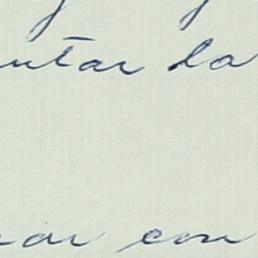 ntar la
ar con